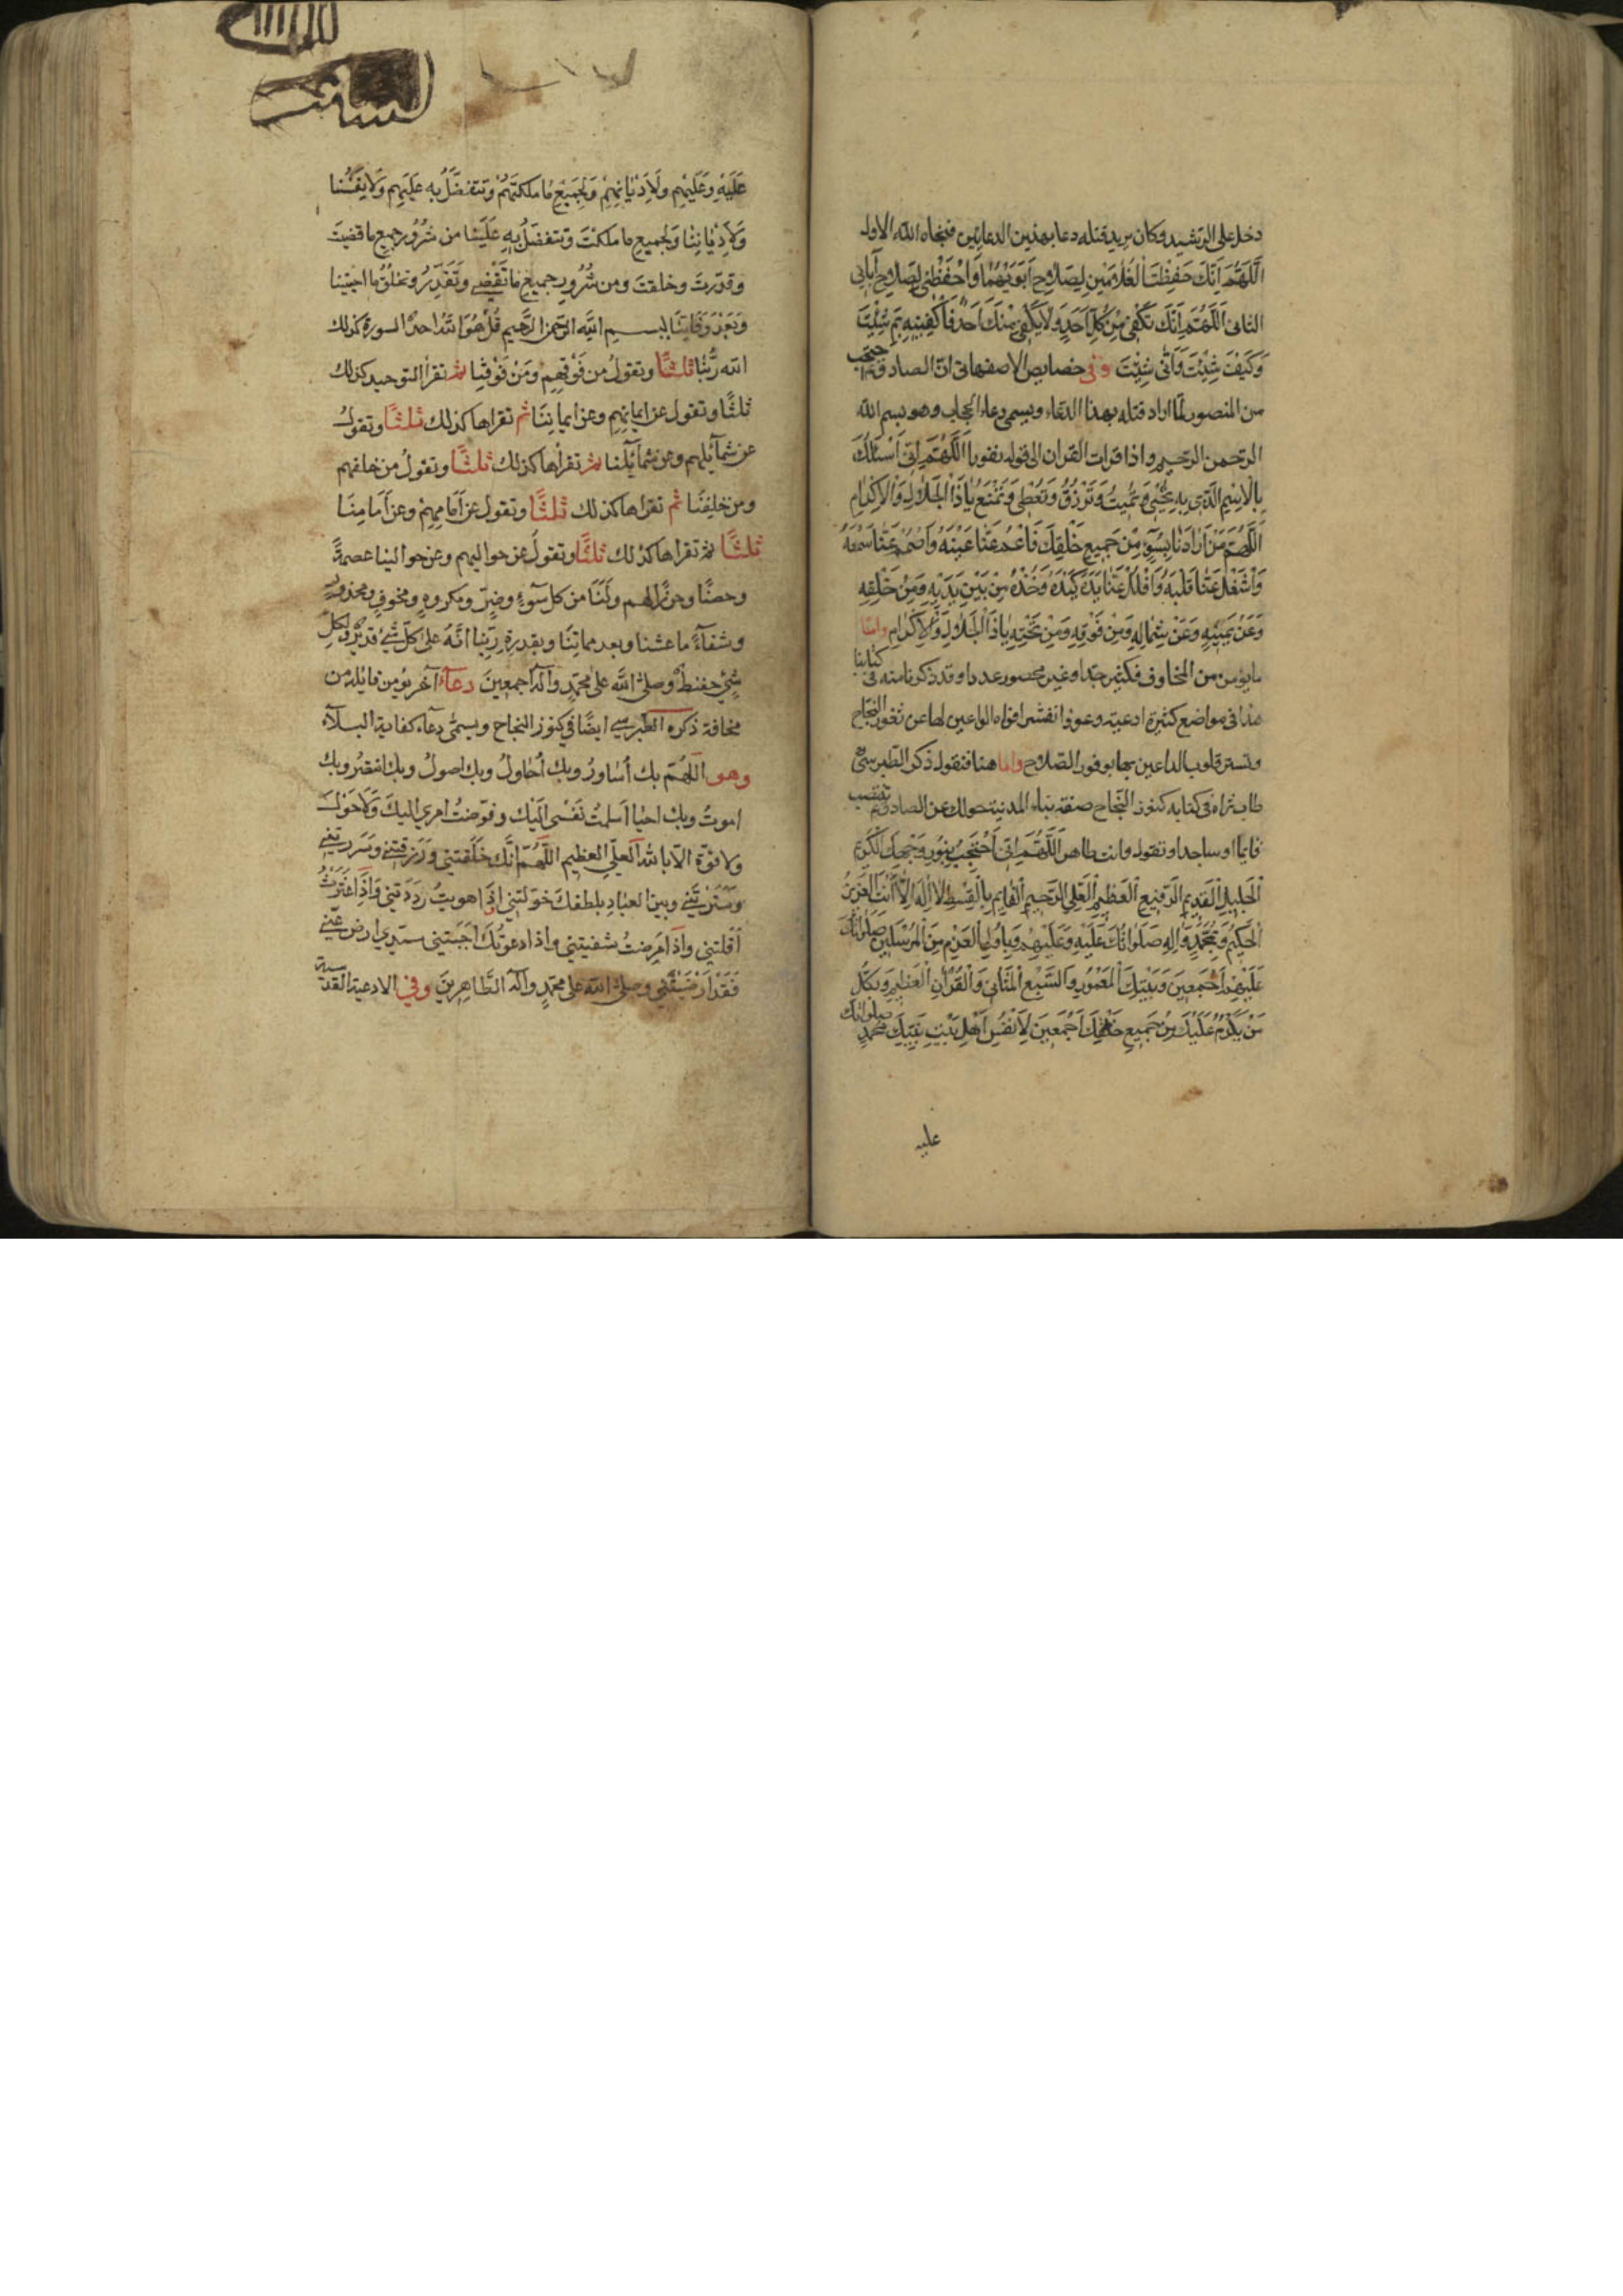 دخل على الرشيد وكان يريد قتله دعا بهذين الدعاءين فنجاه الله الاول
اَللّهُمَّ اِنَّكَ حَفِظْتَ الْغُلامَيْنِ لِصَلاحِ اَبَوَيْهِمَا وَاحْفَظْنى لِصَلاحِ آبائى
الثانى اَللّهُمَّ اِنَّكَ تَكْفى مِنْ كُلِّ اَحَدٍ وَلا يَكْفى مِنْكَ اَحَدٌ فَاكْفِنيهِ بِمَ شِئْتَ
وَكَيْفَ شِئْتَ وَاَنّى شِئْتَ وفى خصايص الاصفهانى انّ الصادق ع احتجب
من المنصور لمّا اراد قتله بهذا الدعاء ويسمى دعاء الحجاب وهو بسم الله
الرحمن الرحيم واذا قرات القران الى قوله نفورا اَللّهُمَّ اِنّى اَسْئَلُكَ
بِالْاِسْمِ الَّذى بِهِ تُحْيى وَتُميتُ وَتَرْزُقُ وَتُعْطى وَتَمْنَعُ يا ذَا الْجَلالِ وَالْاِكْرامِ
اَللّهُمَّ مَنْ اَرادَنا بِسُوءٍ مِنْ جَميعِ خَلْقِكَ فَاَعْمِ عَنّا عَيْنَهُ وَاَصْمِمْ عَنّا سَمْعَهُ
وَاشْغَلْ عَنّا قَلْبَهُ وَاغْلُلْ عَنّا يَدَهُ كَيْدَهُ وَخُذْهُ مِنْ بَيْنِ يَدَيْهِ وَمِنْ خَلْفِهِ
وَعَنْ يَمينِهِ وَعَنْ شِمالِهِ وَمِنْ فَوْقِهِ وَمِنْ تَحْتِهِ يا ذَا الْجَلالِ وَالْاِكْرامِ واما
ما يؤمن من المخاوف فكثير جدا وغير محصور عددا وقد ذكرنا منه فى كتابنا
هذا فى مواضع كثيرة ادعية وعوذا تفتر افواه الواعين لها عن ثغور النجاح
وتستر قلوب الداعين بها بوفور الصلاح واما هنا فنقول ذكر الطبرسى
طاب ثراه فى كتابه كنوز النجاح عن الصادق ع تنتصب
قايما او ساجدا وتقول وانت طاهر اَللّهُمَّ اِنّى اَحْتَجِبُ بِنُورِ وَجْهِكَ الْكَريمِ
الْجَليلِ الْقَديمِ الرَّفيعِ الْعَظيمِ الْعَلِىِّ الرَّحيمِ الْقائِمِ بِالْقِسْطِ لا اِلهَ اِلّا اَنْتَ الْعَزيزُ
الْحَكيمُ وَبِمُحَمَّدٍ وَالِهِ صَلَواتُكَ عَلَيْهِ وَعَلَيْهِمْ وَبِاُولِى الْعَزْمِ مِنَ الْمُرْسَلينَ صَلَواتُكَ
عَلَيْهِمْ اَجْمَعينَ وَبِبَيْتِكَ الْمَعْمُورِ وَالسَّبْعِ الْمَثانى وَالْقُرْآنِ الْعَظيمِ وَبِكُلِّ
مَنْ يَكْرُمُ عَلَيْكَ مِنْ جَميعِ خَلْقِكَ اَجْمَعينَ لِاَنْفُسِ اَهْلِ بَيْتِ نَبِيِّكَ مُحَمَّدٍ صلواتك
عليه
عَلَيْهِ وَعَلَيْهِم ولِاَدْيَانِهِمْ وَلِجَمِيْعِ مَا مَلكتَهُمْ وتتفضَّلُ به عَلَيهِم وَلِاَنفُسِنا
وَلِاَدْيانِنا وَلجميع ما ملكتَ وتتفضلُ بِهِ عَلَينا من شُرُورِ جميع ما قضيتَ
وقدّرتَ وخلقتَ ومن شُرُورِ جميعِ ما تَقْضِى وَتُقَدِّرُ وتخلُقُ ما احييتنا
وَبَعْدَ وَفَاتِنَا بسم الله الرحمن الرحيم قُلْ هُوَ اللهُ احدٌ السورة كذلك
الله رَبُّنا ثلثًا وتقولُ من فَوْقِهِم ومَنْ فَوْقِنا ثم تقرأ التوحيد كذلك
ثلثًا وتقول عن ايمانِهِم وعن ايمانِنَا ثم تقراها كذلك ثلثًا وتقولُ
عن شمآئلِهِم وعن شمآئِلنا ثم تقرأها كذلك ثلثًا وتقولُ من خلفهم
ومن خلفِنَا ثم تقراها كذلك ثلثًا وتقول عن اَمامِهِمْ وعن اَمَامِنَا
ثلثًا ثم تقراها كذلك ثلثًا وتقولُ عن حواليهم وعن حوالينا عصمةً
وحصنًا وحرزًا لهم ولَنَا من كل سُوءٍ وضرٍّ ومكروهٍ ومخوفٍ ومحذورٍ
وشفآءً ما عشنا وبعد مماتِنَا وبقدرة رَبِّنا انَّهُ على كلّ شئ قديرٌ ولكلِ
شئٍ حفيظٌ وصلى الله على محمّدٍ وآله اجمعين دعآءٌ آخر يؤمن قايله من
مخافة ذكره الطبرسى ايضًا فى كنوز النجاح ويسمّى دعآء كفاية البلآء
وهو اللّهُمّ بك اُساورُ وبك اُحاولُ وبك اصولُ وبك انتصرُ وبك
اموتُ وبك احيا اسلمتُ نَفْسى اليْك وفوّضتُ امري اليكَ ولا حَوْلَ
ولا قوّة الّا بالله العلّى العظيم اللّهُمّ انَّك خلقتني ورَزقتنى وسَرَرتَنى
وسَتَرْتَنى وبين العباد بلطفك خوّلتني اذا هويتُ رَدَدتني وَاذا عَثَرْتُ
اَقلتني واذا مَرِضتُ شفيتني واذا دعَوتُكَ اجَبتني سيّدي ارضَ عنّى
فَقَدْ اَرْضَيْتَني وصلى الله على محمّدٍ وآله الطّاهرينَ وفى الادعية القدسية